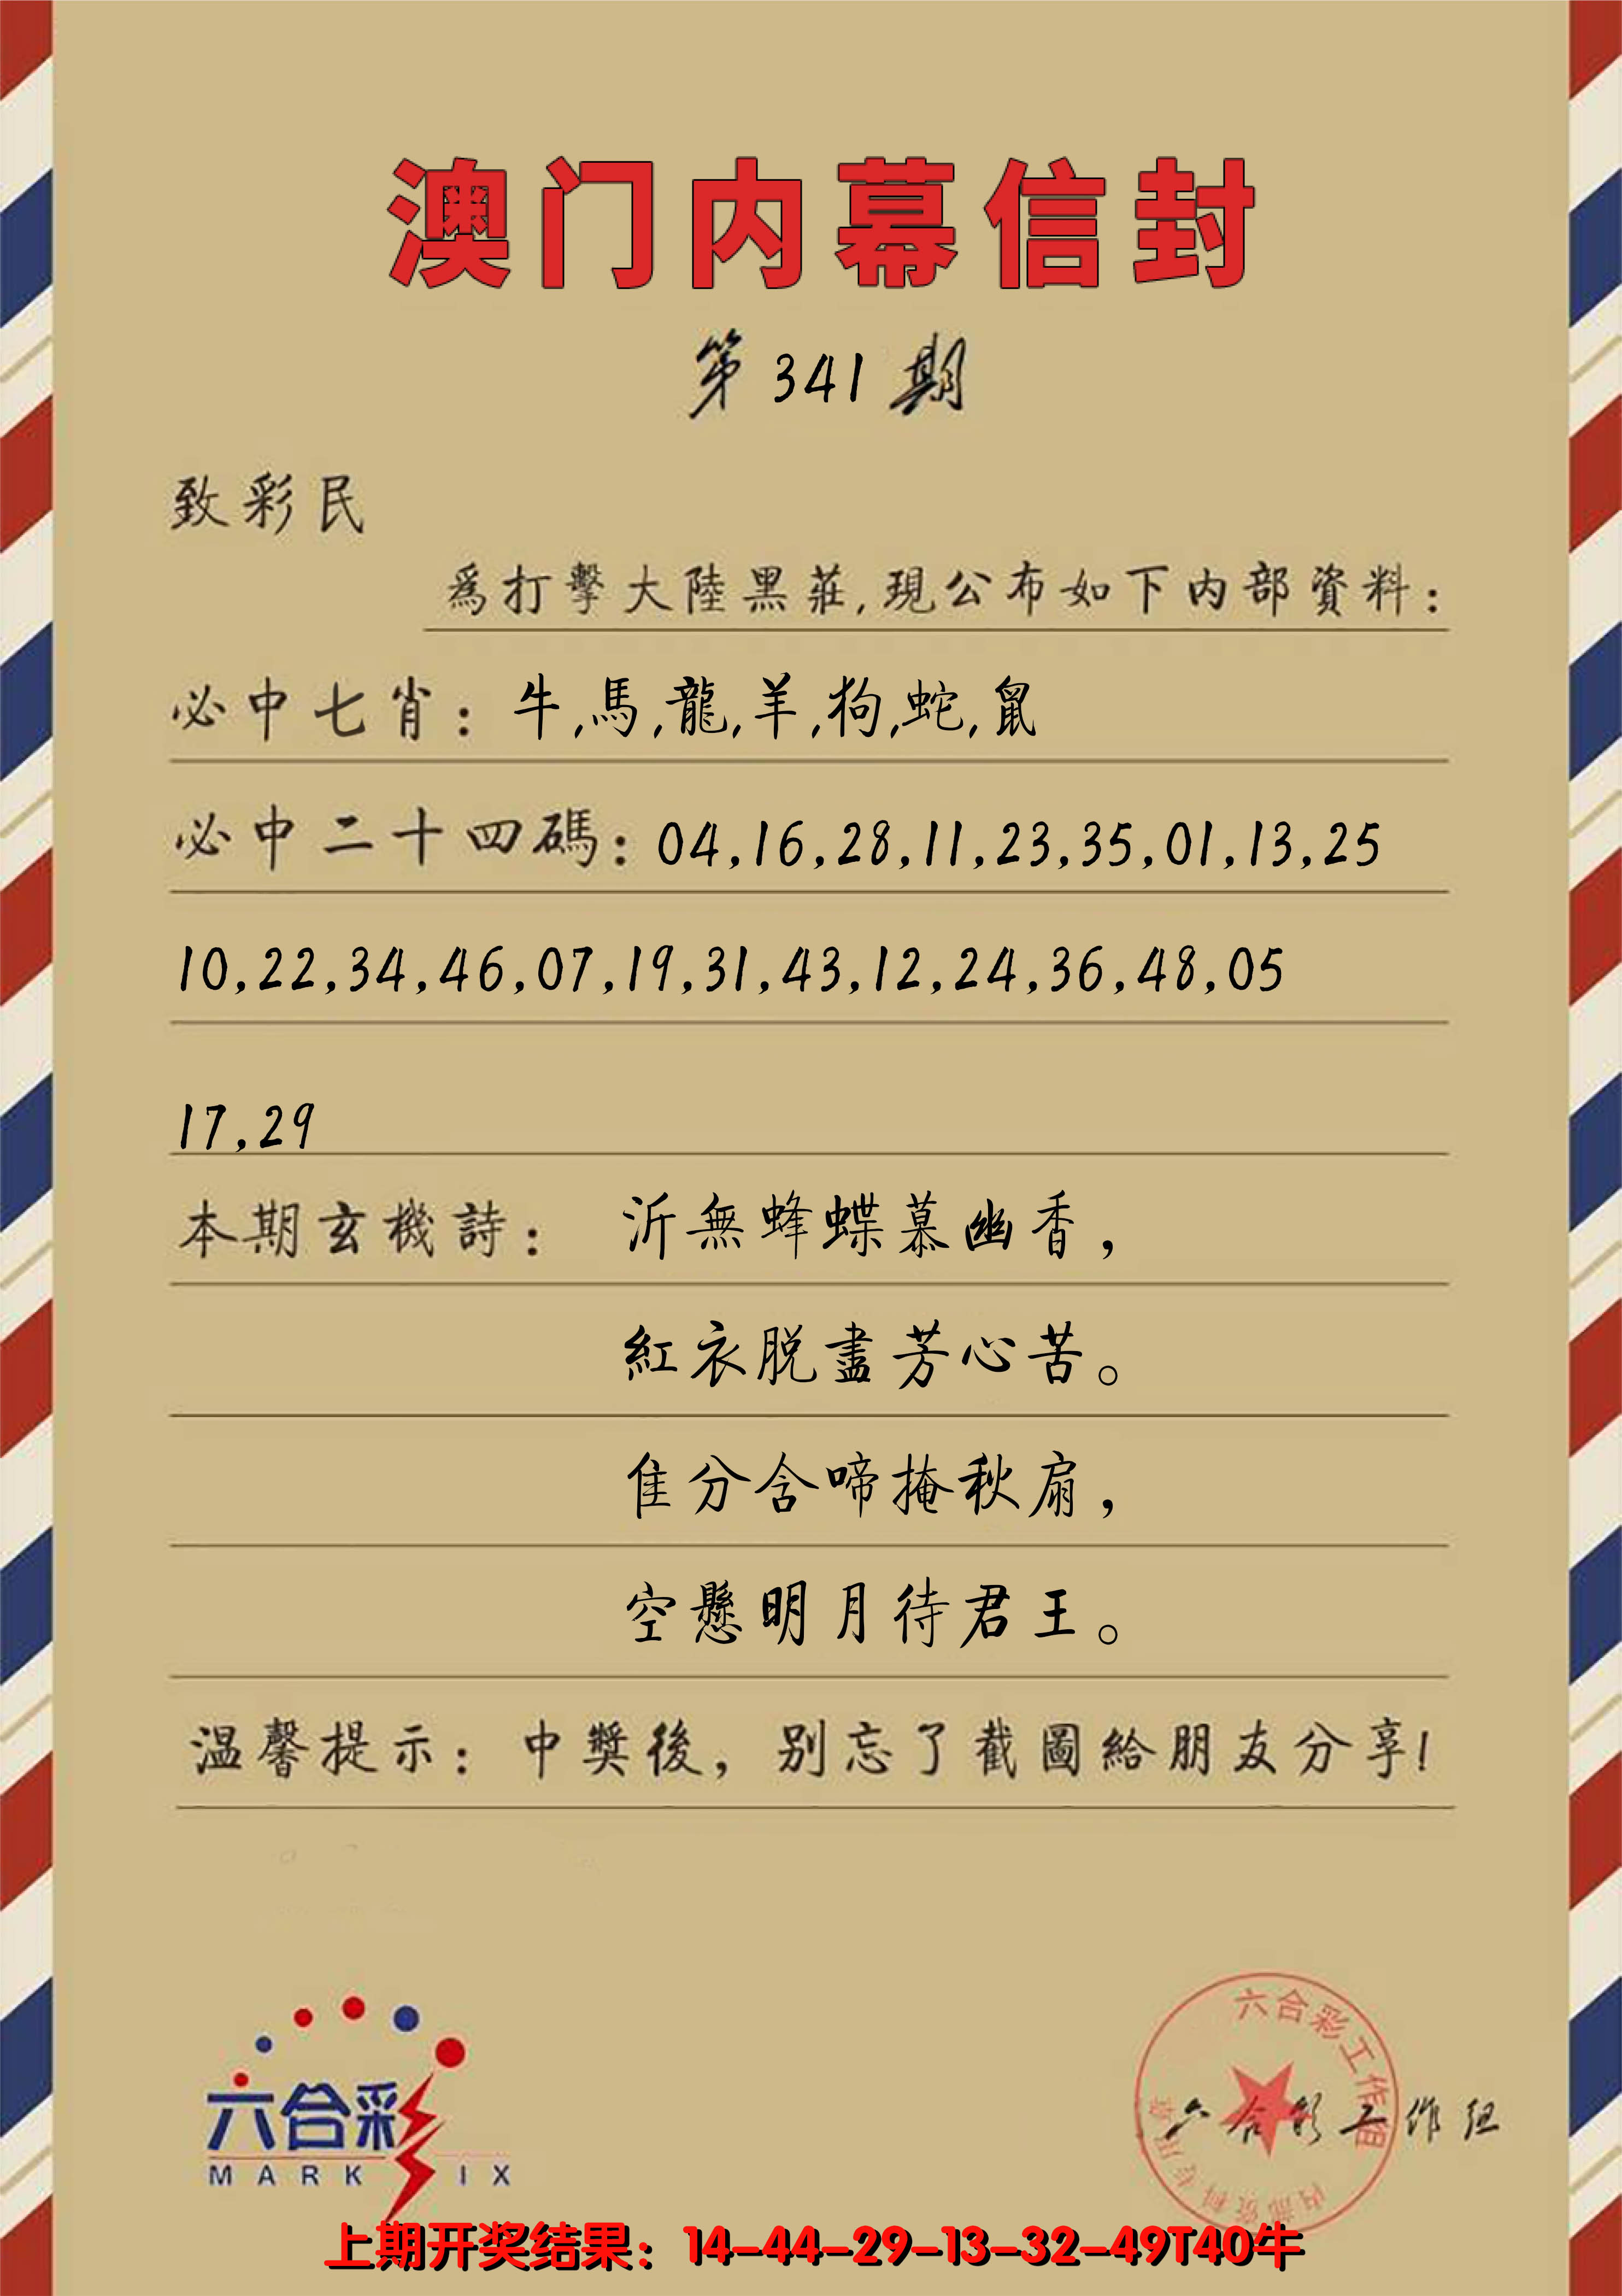 澳门内幕信封
第341期
致彩民
爲打擊大陸黑莊,現公布如下内部資料:
必中七肖:牛,馬,龍,羊,狗,蛇,鼠
必中二十四碼:04,16,28,11,23,35,01,13,25
10,22,34,46,07,19,31,43,12,24,36,48,05
17,29
本期玄機詩: 沂無蜂蝶慕幽香,
紅衣脱盡芳心苦。
隹分含啼掩秋扇,
空懸明月待君王。
温馨提示:中獎後,别忘了截圖給朋友分享!
六合彩
MARK IX
六合彩工作组
内部资料专用章
六合彩工作组
上期开奖结果:14-44-29-13-32-49T40牛